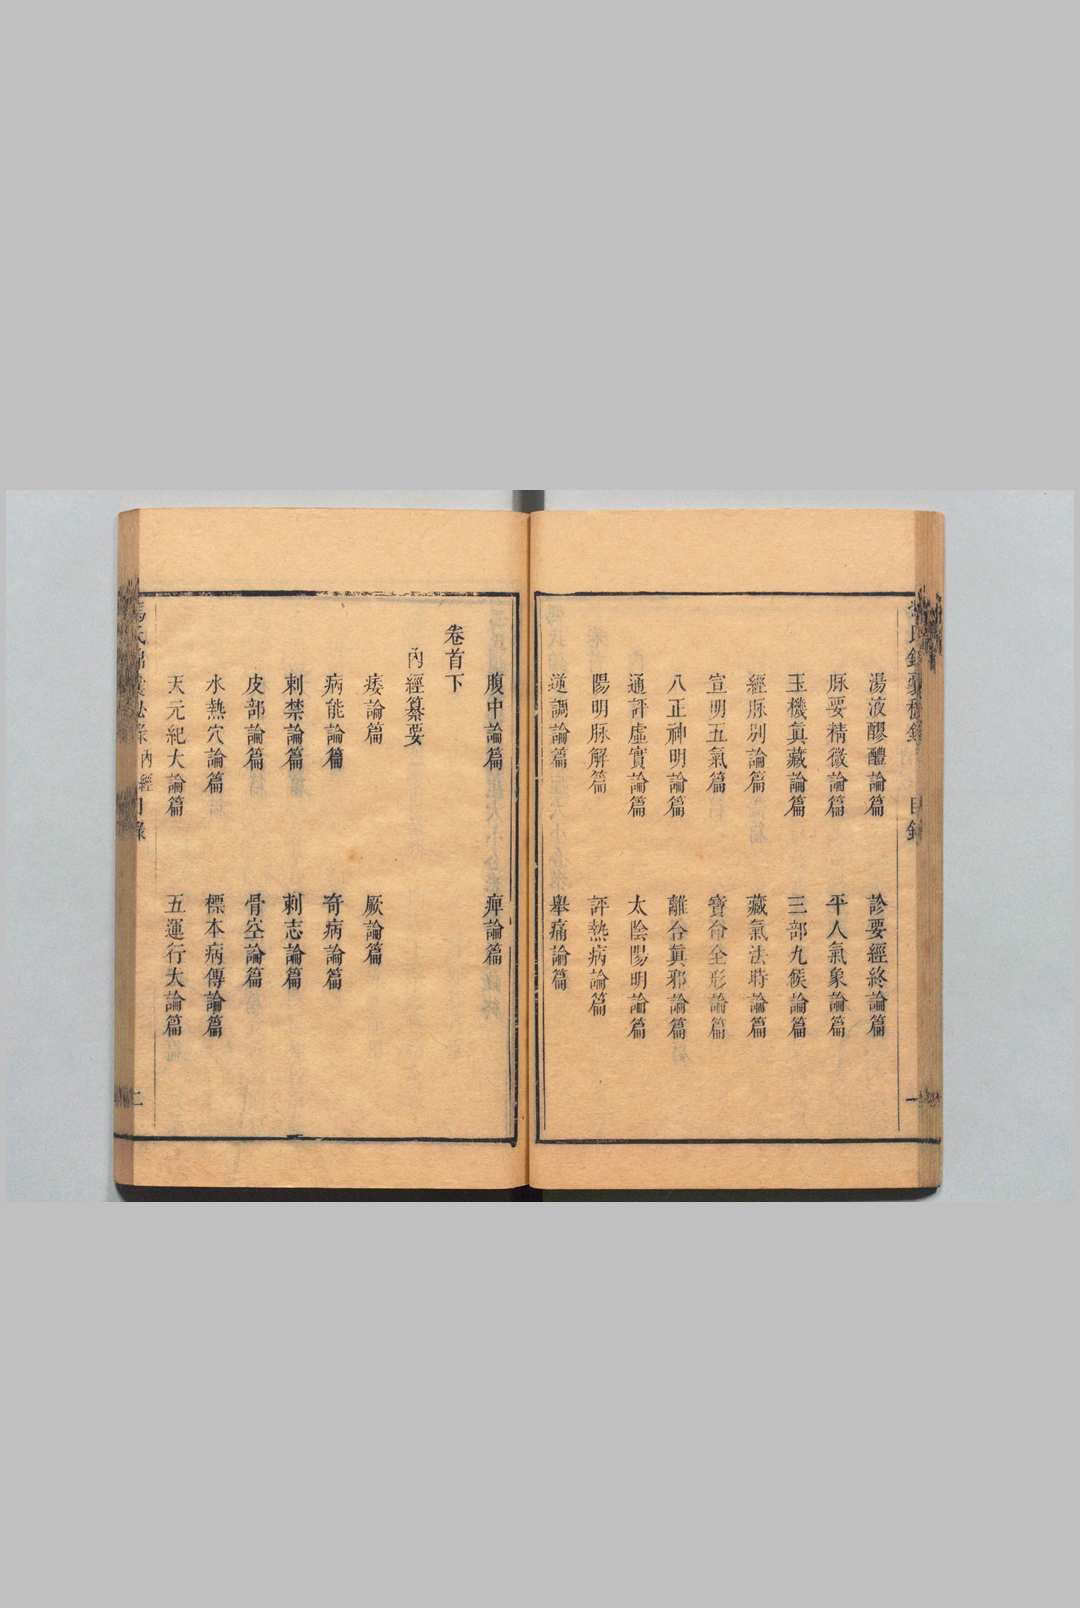 湯液醪醴論篇　診要經終論篇
脈要精微論篇　平人氣象論篇
玉機眞藏論篇　三部九候論篇
經脈別論篇　藏氣法時論篇
宣明五氣篇　寶命全形論篇
八正神明論篇　離合眞邪論篇
通評虛實論篇　太陰陽明論篇
陽明脈解篇　評熱病論篇
逆調論篇　舉痛論篇
目錄　一
腹中論篇　痺論篇
卷首下
內經纂要
痿論篇　厥論篇
病能論篇　奇病論篇
刺禁論篇　刺志論篇
皮部論篇　骨空論篇
水熱穴論篇　標本病傳論篇
天元紀大論篇　五運行大論篇
馮氏錦囊秘錄　內經　目錄　二